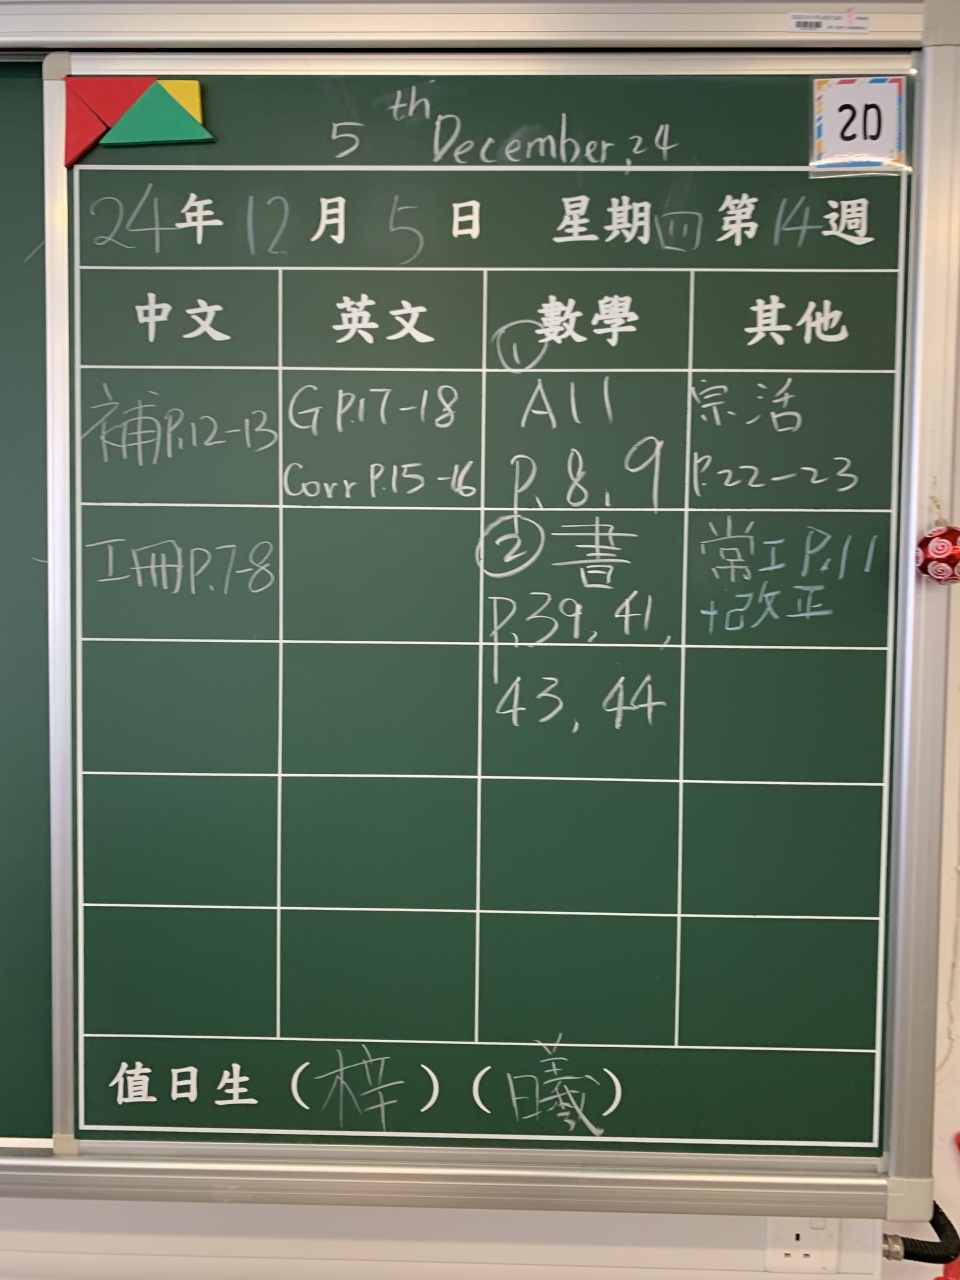 5th December, 24
2D
24年 12月 5日 星期四 第14週
中文 英文 數學 其他
補P.12-13
工冊P.7-8
G P.17-18
Corr P.15-16
① A11
P.8, 9
② 書
P.39, 41,
43, 44
宗活
P.22-23
常工P.11
+改正
值日生 (梓) (曦)